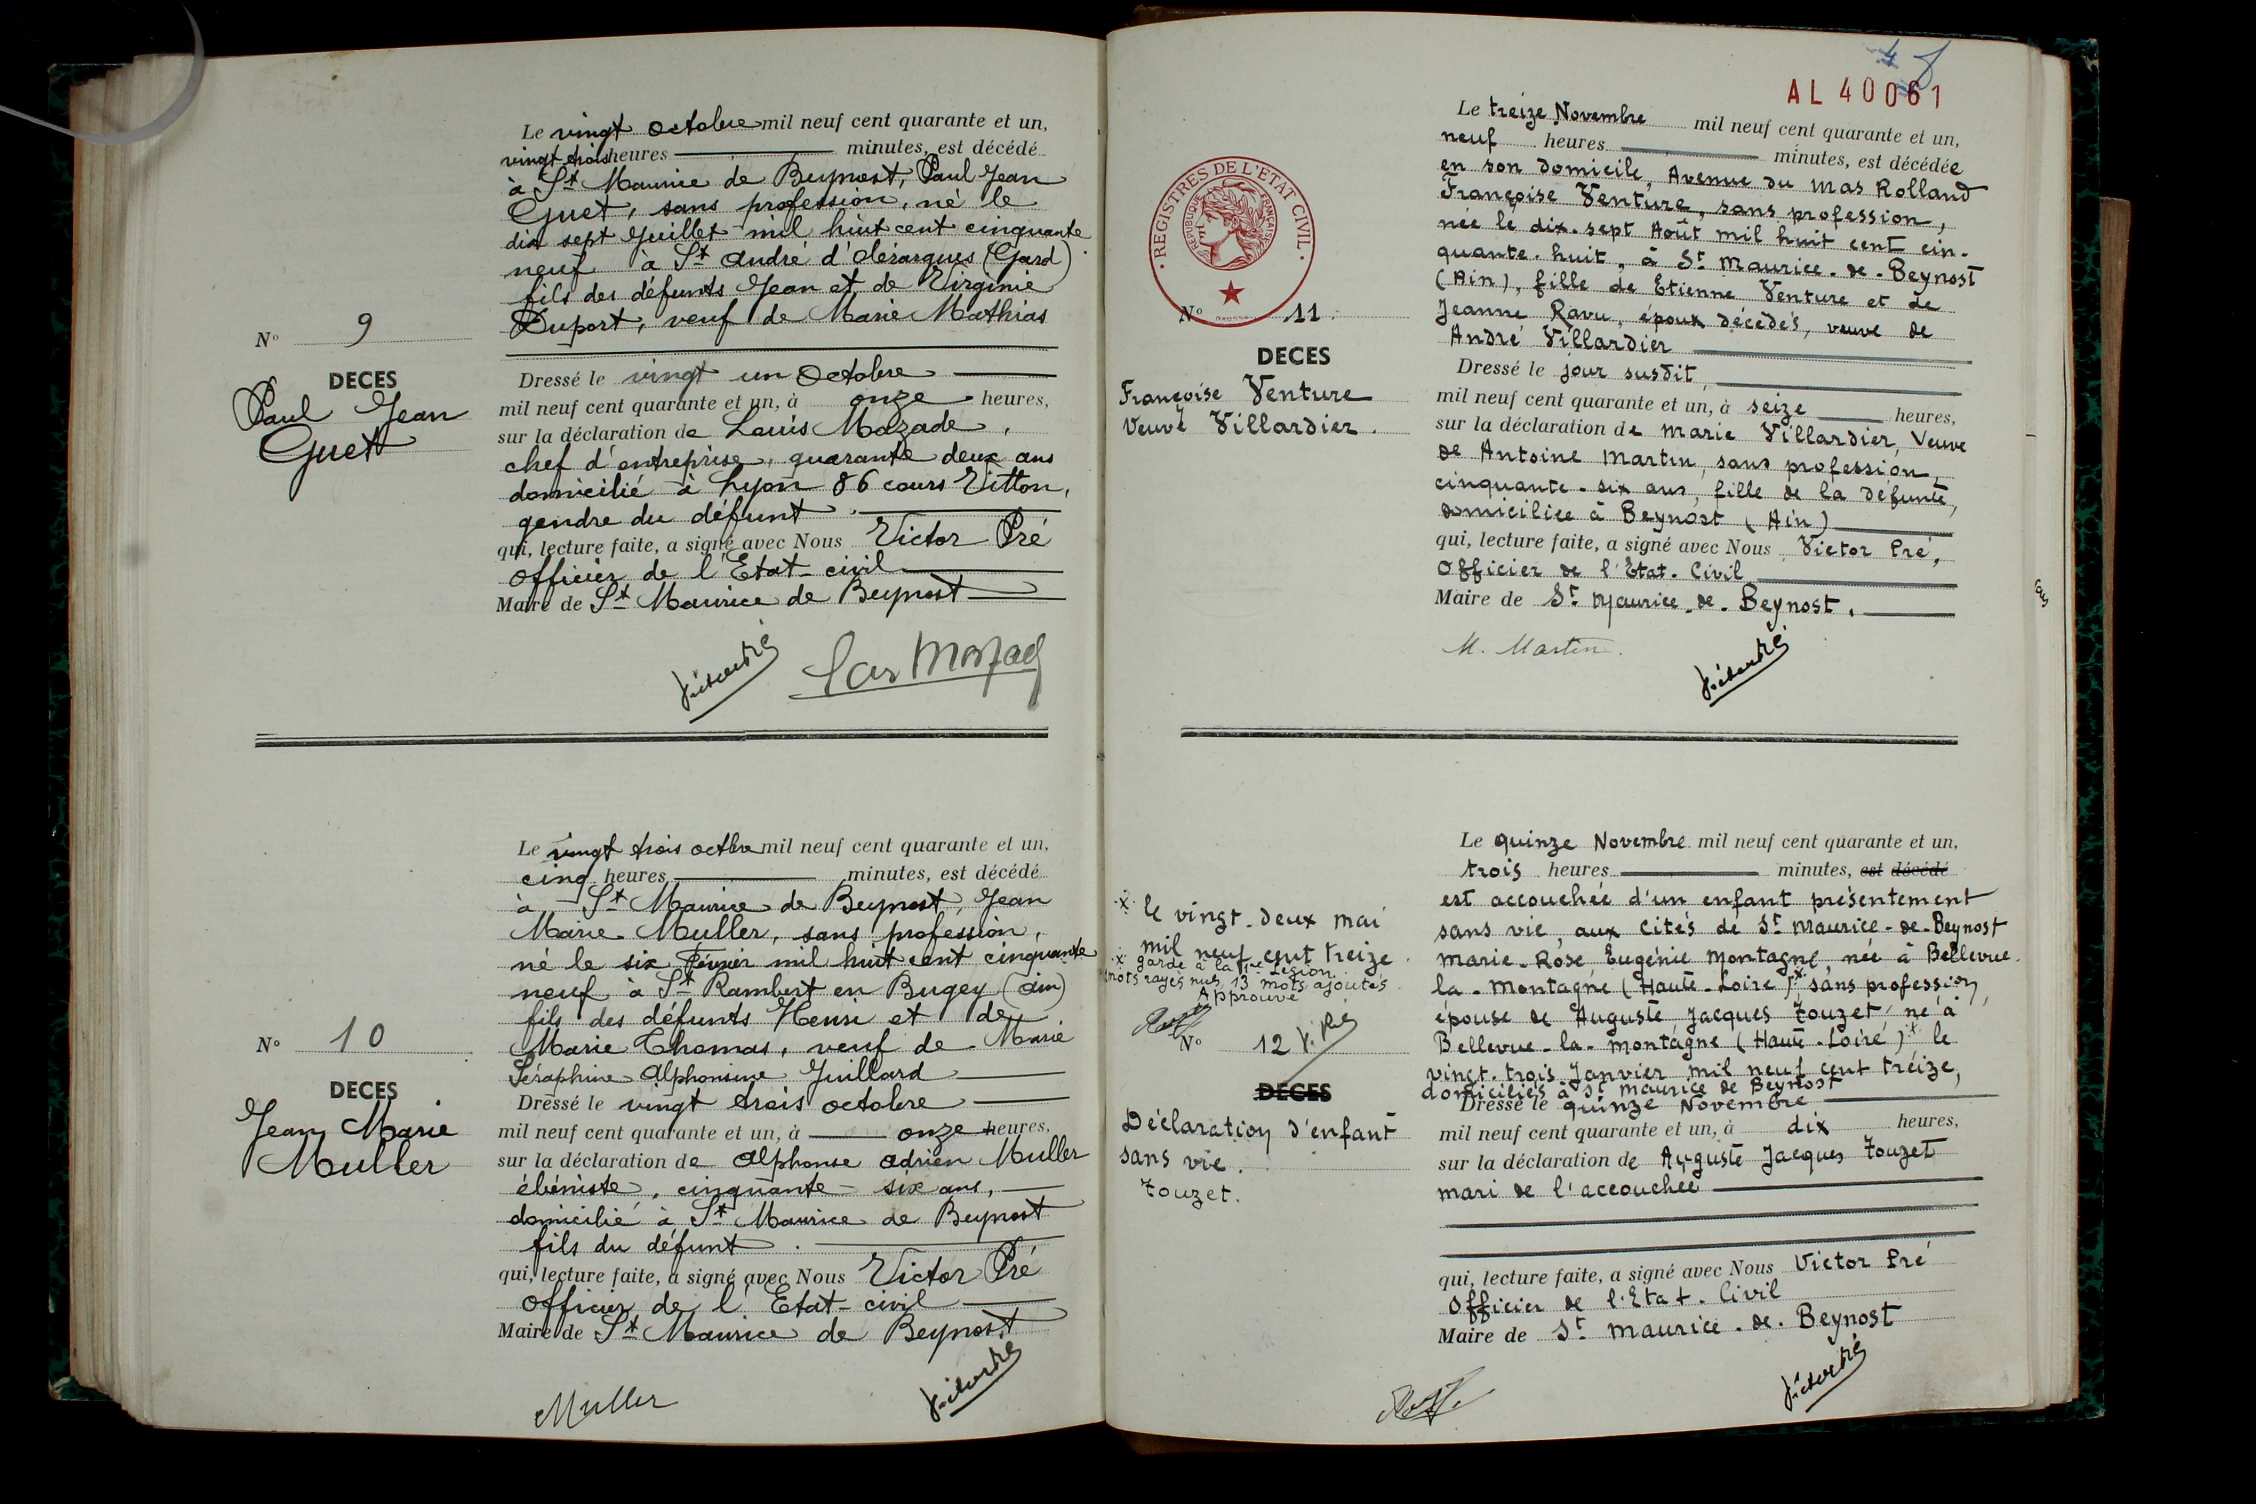 Le vingt octobre mil neuf cent quarante et un,
vingt trois heures minutes, est décédé
à St Maurice de Beynost, Paul Jean
Guet, sans profession, né le
dix sept Juillet mil huit cent cinquante
neuf à St André d'Olérargues (Gard)
fils des défunts Jean et de Virginie
Duport, veuf de Marie Mathias
N° 9
DECES
Paul Jean
Guet
Dressé le vingt un Octobre
mil neuf cent quarante et un, à onze heures,
sur la déclaration de Louis Mazade,
chef d'entreprise, quarante deux ans
domicilié à Lyon 86 cours Vitton,
gendre du défunt.
qui, lecture faite, a signé avec Nous Victor Pré
officier de l'Etat-civil
Maire de St Maurice de Beynost
Victor Pré
Le vingt trois octbre mil neuf cent quarante et un,
cinq heures minutes, est décédé
à St Maurice de Beynost, Jean
Marie Muller, sans profession,
né le six Février mil huit cent cinquante
neuf à St Rambert en Bugey (Ain)
fils des défunts Henri et de
Marie Thomas, veuf de Marie
Séraphine Alphonsine Juillard
N° 10
DECES
Jean Marie
Muller
Dressé le vingt trois octobre
mil neuf cent quarante et un, à onze heures,
sur la déclaration de Alphonse Adrien Muller
ébéniste, cinquante six ans,
domicilié à St Maurice de Beynost
fils du défunt.
qui, lecture faite, a signé avec Nous Victor Pré
officier de l'Etat-civil
Maire de St Maurice de Beynost
Muller
Victor Pré
AL 40061
REGISTRES DE L'ETAT CIVIL
REPUBLIQUE FRANÇAISE
Le treize Novembre mil neuf cent quarante et un,
neuf heures minutes, est décédée
en son domicile, Avenue du Mas Rolland
Françoise Venture, sans profession,
née le dix-sept Août mil huit cent cin-
quante-huit, à St Maurice-de-Beynost
(Ain), fille de Etienne Venture et de
Jeanne Ravu, époux décédés, veuve de
André Villardier
N° 11
DECES
Françoise Venture
Veuve Villardier.
Dressé le jour susdit,
mil neuf cent quarante et un, à seize heures,
sur la déclaration de Marie Villardier, Veuve
de Antoine Martin, sans profession,
cinquante-six ans, fille de la défunte,
domiciliée à Beynost (Ain)
qui, lecture faite, a signé avec Nous Victor Pré,
Officier de l'Etat-Civil
Maire de St Maurice-de-Beynost.
M. Martin.
Victor Pré
Le quinze Novembre mil neuf cent quarante et un,
trois heures minutes, est décédé
est accouchée d'un enfant présentement
sans vie, aux Cités de St Maurice-de-Beynost
Marie-Rose Eugénie Montagne, née à Bellevue-
la-Montagne (Haute-Loire) x sans profession,
épouse de Auguste Jacques Touzet né à
Bellevue-la-Montagne (Haute-Loire) x le
vingt-trois Janvier mil neuf cent treize,
domiciliés à St Maurice de Beynost
x le vingt-deux mai
mil neuf cent treize
x garde à la 1ère Légion
mots rayés nuls, 13 mots ajoutés
Approuvé
V. Pré
N° 12
DECES
Déclaration d'enfant
sans vie.
Touzet.
Dressé le quinze Novembre
mil neuf cent quarante et un, à dix heures,
sur la déclaration de Auguste Jacques Touzet
mari de l'accouchée
qui, lecture faite, a signé avec Nous Victor Pré
Officier de l'Etat-Civil
Maire de St Maurice-de-Beynost
Victor Pré